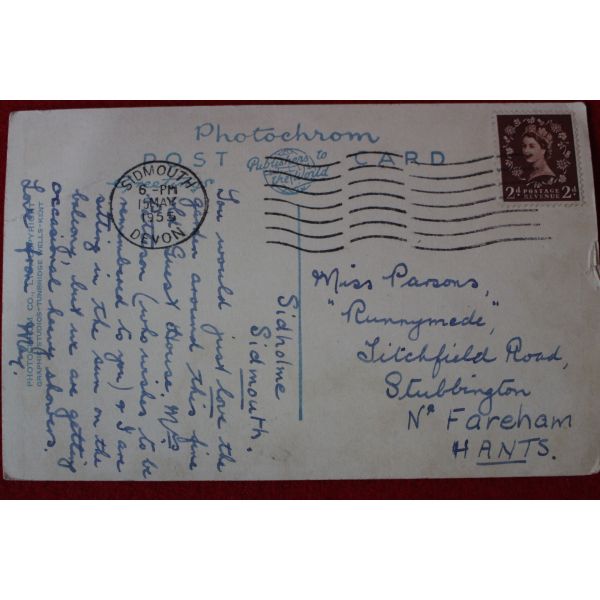 Photochrom
POST CARD
Publishers to
the World
SIDMOUTH
6-PM
MAY
1955
DEVON
2D POSTAGE REVENUE 2D
Sidholme
Sidmouth.
You would just love the
garden around this fine
Guest House. Mrs
(who wishes to be
remembered to you) & I are
sitting in the sun on the
balcony, but we are getting
occasional heavy showers.
Love from May.
Miss Parsons,
"Runnymede",
Titchfield Road,
Stubbington
Nr Fareham
HANTS.
PHOTOCHROM CO., LTD.
GRAPHIC STUDIOS-TUNBRIDGE WELLS-KENT